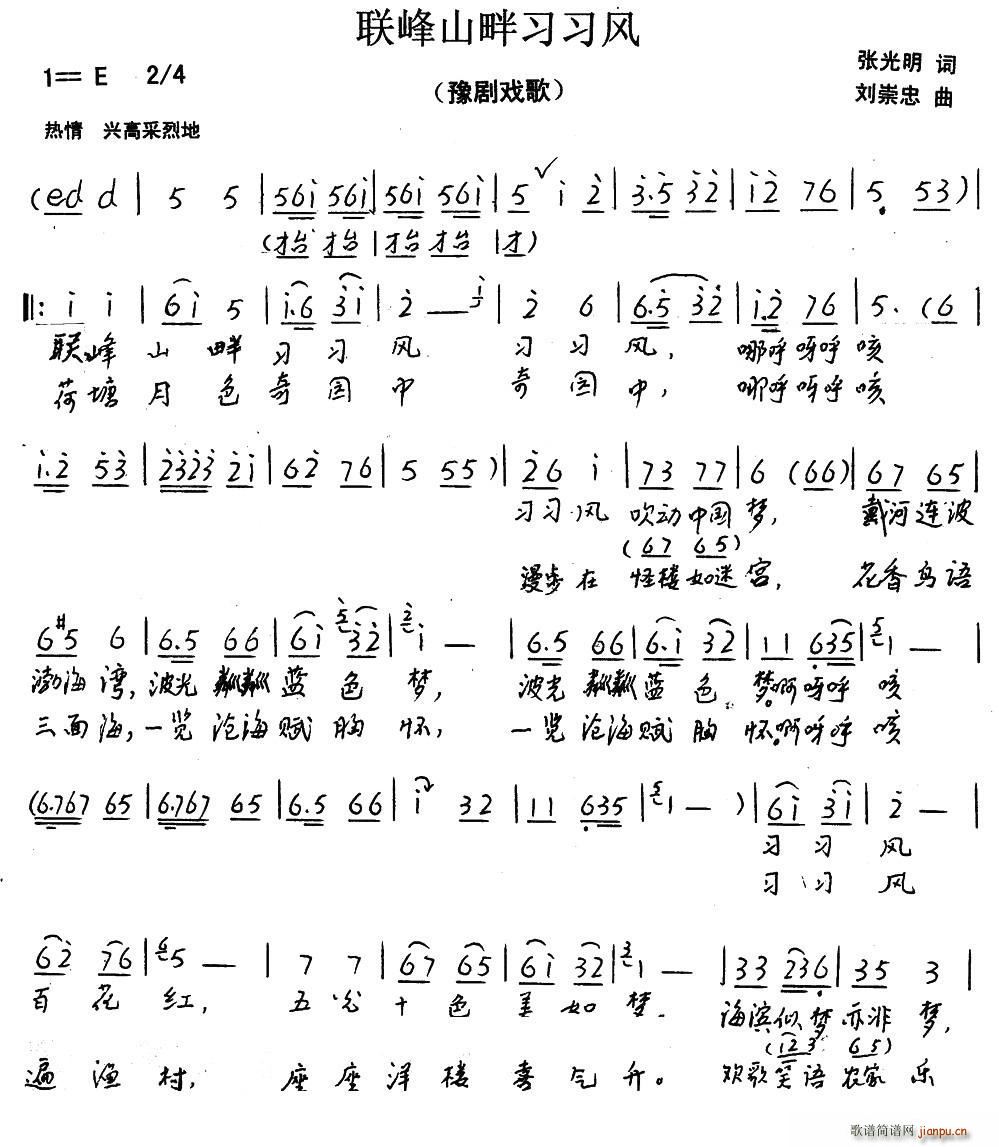 联峰山畔习习风
1= E 2/4
(豫剧戏歌)
张光明 词
刘崇忠 曲
热情 兴高采烈地
(ed d | 5 5 | 56i 56i | 56i 56i | 5 i 2 | 3.5 32 | i2 76 | 5. 53) |
(抬 抬 | 抬 抬 | 才)
‖: i i | 6i 5 | i.6 3i | 2 — | 2 6 | 6.5 32 | i.2 76 | 5. (6 |
联峰 山 畔 习 习 风 习 习 风, 哪呼呀呼 咳
荷塘 月 色 奇 园 中 奇 园 中, 哪呼呀呼 咳
i.2 53 | 2323 2i | 62 76 | 5 55) | 26 i | 73 77 | 6 (66) | 67 65 |
习习 风 吹动中国 梦, 戴河连波
(67 65)
漫步在 怪楼如迷 宫, 花香鸟语
6#5 6 | 6.5 66 | 6i 32 | i — | 6.5 66 | 6.i 32 | 11 635 | 1 — |
渤海 湾, 波光粼粼 蓝 色 梦, 波光粼粼 蓝 色 梦啊呀呼 咳
三面海, 一览沧海赋 胸 怀, 一览沧海赋 胸 怀啊呀呼 咳
(6.767 65 | 6.767 65 | 6.5 66 | i 32 | 11 635 | 1 — ) | 6i 3i | 2 — |
习 习 风
习 习 风
62 76 | 5 — | 7 7 | 67 65 | 6i 32 | 1 — | 33 236 | 35 3 |
百 花 红, 五 光 十 色 美 如 梦. 海滨似梦亦非 梦,
(i23 65)
遍 渔 村, 座 座 洋 楼 喜 气 升。 欢歌笑语农家 乐
歌谱简谱网
jianpu.cn